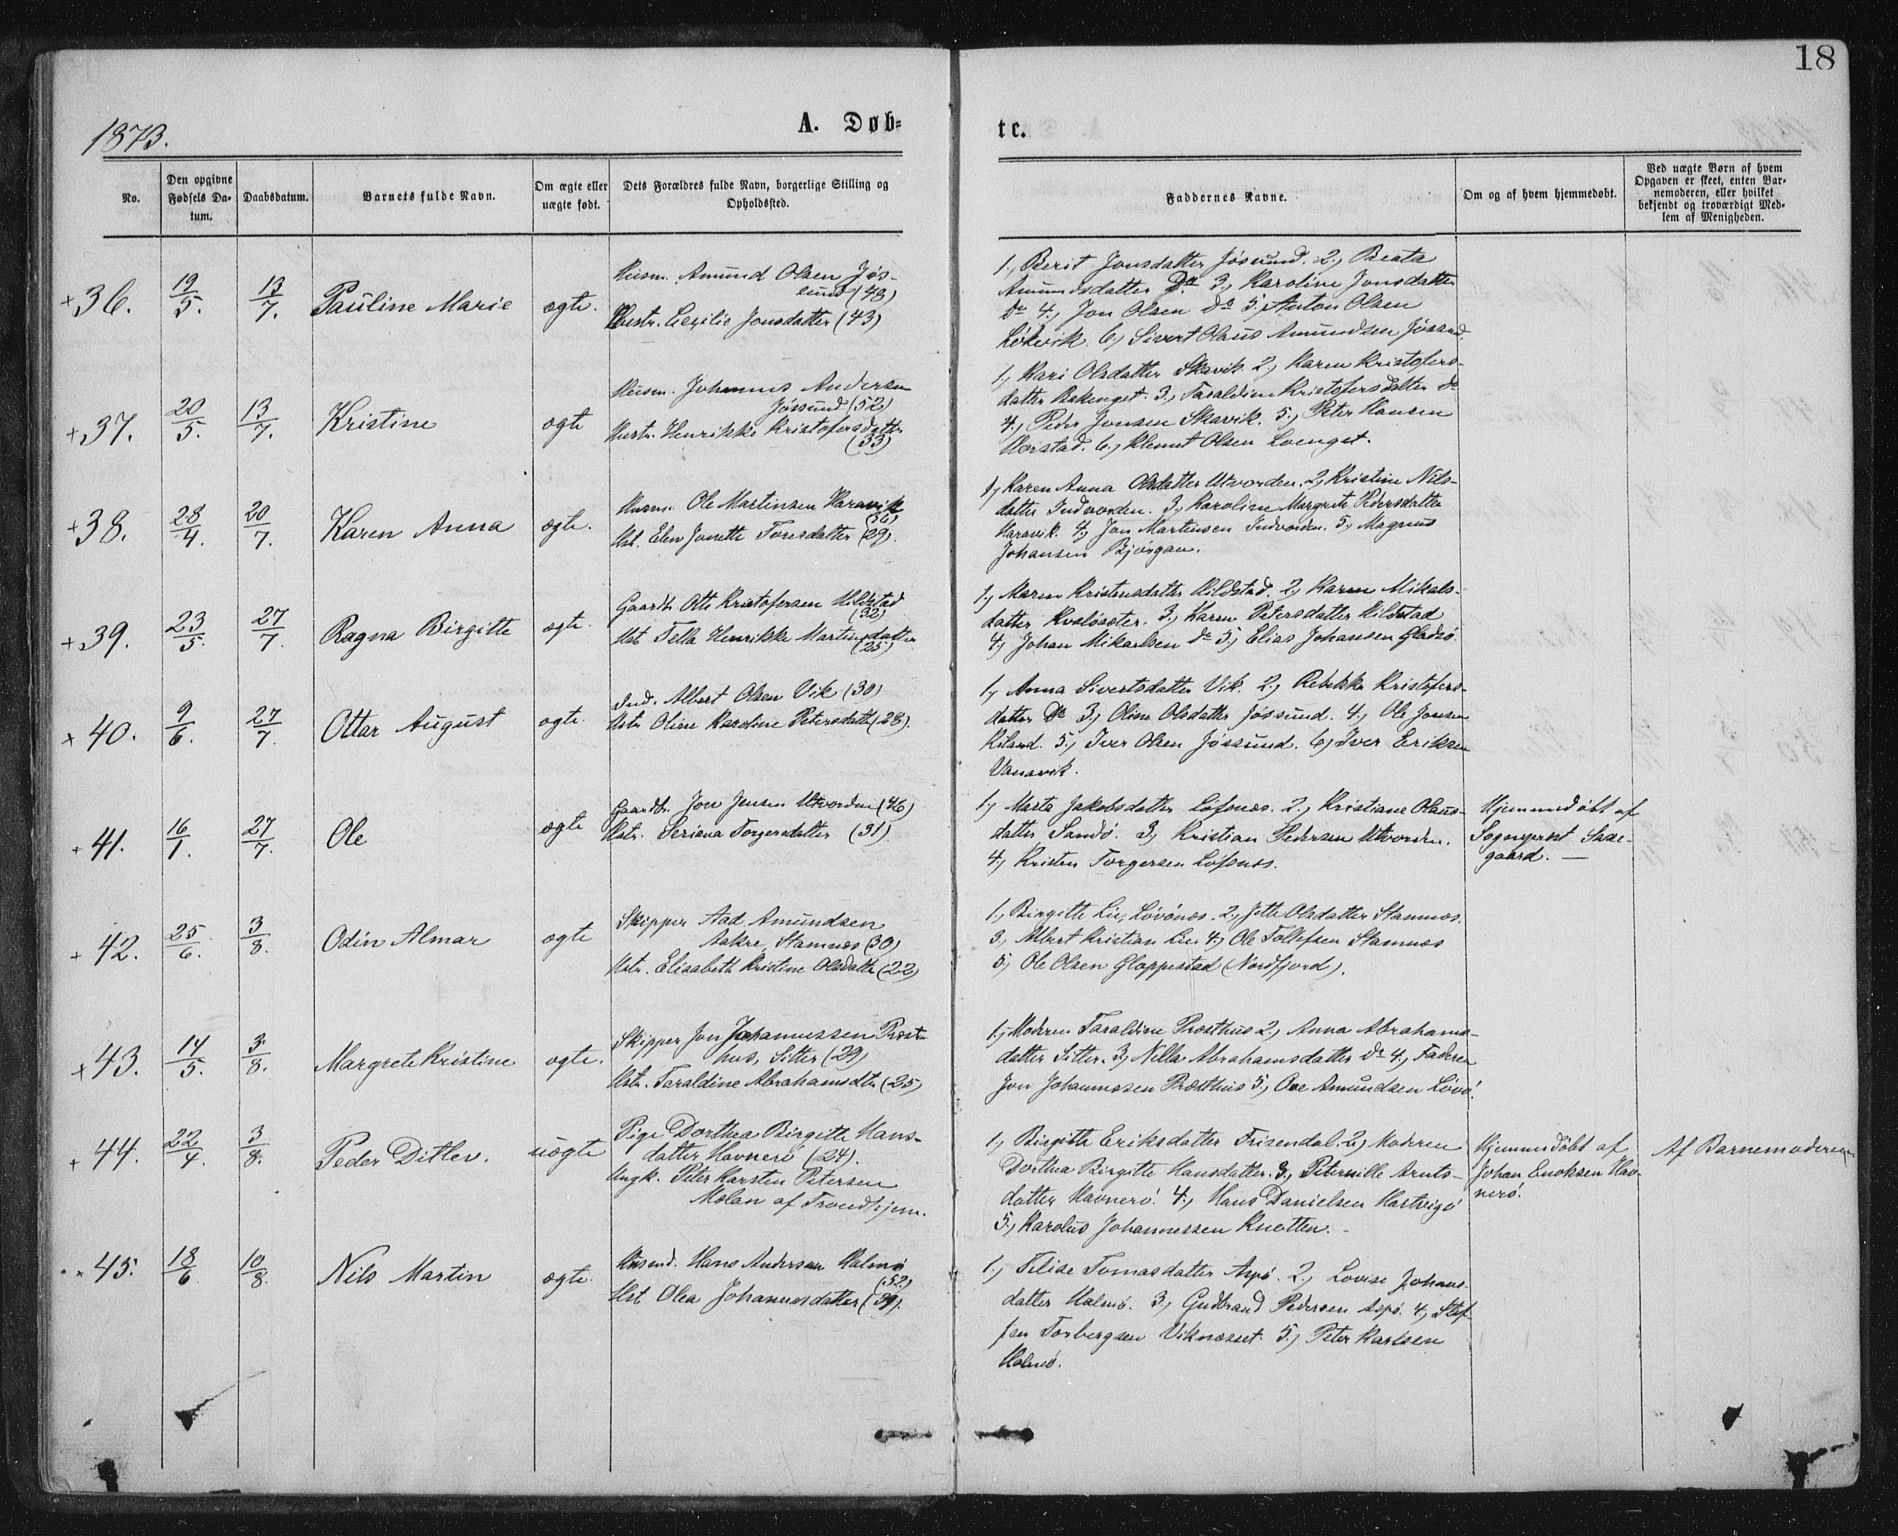 18
1873.
A. Døb=
te.
No.
Den opgivne Fødsels Da-
tum.
Daabsdatum.
Barnets fulde Navn.
Om ægte eller uægte født.
Dets Forældres fulde Navn, borgerlige Stilling og Opholdssted.
Faddernes Navne.
Om og af hvem hjemmedøbt.
Ved uægte Børn af hvem
Opgaven er skeet, enten Bar-
nemoderen, eller hvilket
bekjendt og troværdigt Med-
lem af Menigheden.
+36. 19/5. 13/7. Pauline Marie ægte.
Husm. Amund Olsen Jøs-
sund (43)
Hustr. Cecilie Jonsdatter (43)
1, Berit Jonsdatter Jøsund. 2, Beata
Amundsdatter Do 3, Karoline Jonsdatter
do 4, Jon Olsen do 5, Anton Olsen
6, Sivert Olaus Amundsen Jøssund.
+37. 20/5. 13/7. Kristine ægte
Husm. Johannes Andersen
Jøssund (52)
Hustr. Henrikke Kristofersdatter
(33)
1, Kari Olsdatter Skavik 2, Karen Kristofers-
datter 3, Taraldine Kristofersdatter do
4, Peder Jonsen Skavik. 5, Peter Hansen
6, Klemet Olsen Loenget.
+38. 28/4. 20/7. Karen Anna ægte.
Husm. Ole Martinsen Haravik
(36)
Hst. Elen Jonette Toresdatter (29).
1, Karen Anna Olsdatter Utvorden. 2, Kristine Nils-
datter Indvorden. 3, Karoline Margrete Pedersdatter
Haravik. 4, Jon Martinsen Indvorden. 5, Magnus
Johansen Bjørgan.
+39. 23/5. 27/7. Ragna Birgitte ægte.
Gaardb. Otto Kristofersen Hildstad
(32)
Hst Tella Henrikke Martinsdatter
(25)
1, Maren Kristensdatter Hildstad. 2, Karen Mikals-
datter Kvaløseter. 3, Karen Petersdatter Hildstad
4, Johan Mikaelsen do 5, Elias Johansen Gladsø.
× 40. 9/6. 27/7. Ottar August ægte.
Ind. Albert Olsen Vik (30)
Hstr Oline Karoline Petersdatter (28).
1, Anna Sivertsdatter Vik. 2, Rebekka Kristofers-
datter Do 3, Oline Olsdatter Jøssund. 4, Ole Jonsen
Kiland. 5, Iver Olsen Jøssund. 6, Iver Eriksen
Vansvik.
+ 41. 16/1. 27/7. Ole ægte
Gaardb. Jon Jensen Utvorden (46)
Hstr. Seriana Torgersdatter (31).
1, Marta Jakobsdatter Løfsnes. 2, Kristiane Olaus-
datter Sandø. 3, Kristian Pedersen Utvorden.
4, Kristen Torgersen Løfsnes.
Hjemmedøbt af
Sogneprest Saxe-
gaard. —
+ 42. 25/6. 3/8. Odin Almar ægte
Skipper Aad Amundsen
Aakre, Stamnes (30)
Hstr. Elisabeth Kristine Olsdatter (22)
1, Birgitte Lie, Løvønes. 2, Jette Olsdatter Stamnes.
3, Albert Kristian Lie 4, Ole Tollefsen Stamnes
5, Ole Olsen Gloppestad (Nordfjord).
× 43. 14/5. 3/8. Margrete Kristine ægte.
Skipper Jon Johannessen Præst-
hus, Sitter (29)
Hstr. Taraldine Abrahamsdtr (25)
1, Moderen Taraldine Præsthus 2, Anna Abrahams-
datter Sitter. 3, Nella Abrahamsdatter do 4, Faderen
Jon Johannessen Præsthus 5, Ove Amundsen Løvø.
+ 44. 22/4. 3/8. Peder Ditlev. uægte
Pige Dorthea Birgitte Hans-
datter Havnerø (24).
Ungk. Peter Karsten Petersen
Molan af Trondhjem.
1, Birgitte Eriksdatter Frisendal. 2, Moderen
Dorthea Birgitte Hansdatter. 3, Pernille Arnts-
datter Havnerø. 4, Hans Danielsen
5, Karolus Johannessen Knotten. -
Hjemmedøbt af
Johan Enoksen Hav-
nerø.
Af Barnemoderen
× 45. 18/6. 10/8. Nils Martin ægte.
Husmd. Hans Andersen Halmø
(52)
Hst Olea Johannesdatter (39).
1, Felise Tomasdatter Aspø. 2, Lovise Johans-
datter Halmø. 3, Gudbrand Pedersen Aspø. 4, Stef-
fen Torbergsen Viknæset. 5, Peter Karlsen
Halmø.